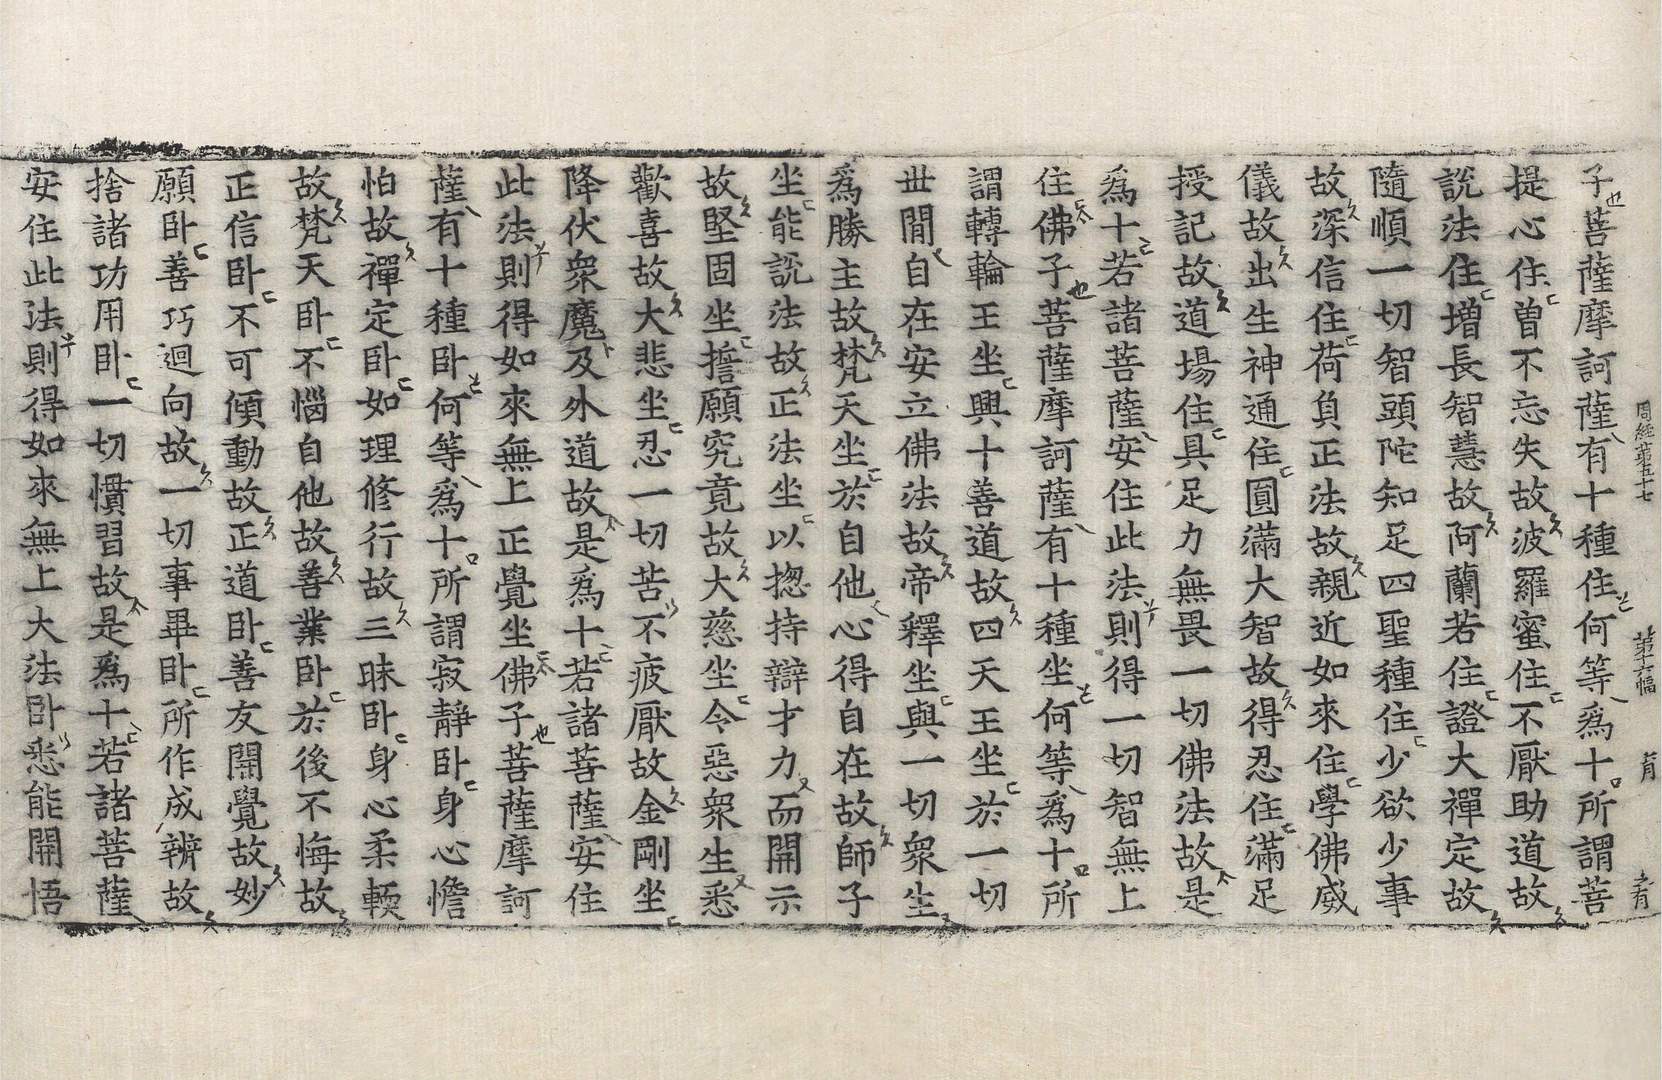 周經第五十七 第十六幅
子菩薩摩訶薩有十種住何等爲十所謂菩
提心住曽不忘失故波羅蜜住不厭助道故
說法住增長智慧故阿蘭若住證大禪定故
隨順一切智頭陀知足四聖種住少欲少事
故深信住荷負正法故親近如來住學佛威
儀故出生神通住圓滿大智故得忍住滿足
授記故道場住具足力無畏一切佛法故是
爲十若諸菩薩安住此法則得一切智無上
住佛子菩薩摩訶薩有十種坐何等爲十所
謂轉輪王坐興十善道故四天王坐於一切
世閒自在安立佛法故帝釋坐與一切衆生
爲勝主故梵天坐於自他心得自在故師子
坐能說法故正法坐以揔持辯才力而開示
故堅固坐誓願究竟故大慈坐令惡衆生悉
歡喜故大悲坐忍一切苦不疲厭故金剛坐
降伏衆魔及外道故是爲十若諸菩薩安住
此法則得如來無上正覺坐佛子菩薩摩訶
薩有十種卧何等爲十所謂寂靜卧身心憺
怕故禪定卧如理修行故三昧卧身心柔輭
故梵天卧不惱自他故善業卧於後不悔故
正信卧不可傾動故正道卧善友開覺故妙
願卧善巧迴向故一切事畢卧所作成辨故
捨諸功用卧一切慣習故是爲十若諸菩薩
安住此法則得如來無上大法卧悉能開悟